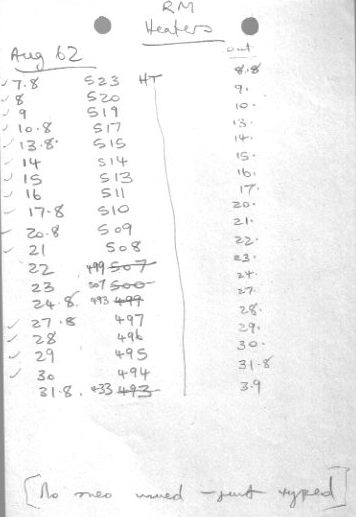 RM
Heaters
Aug 62 out
✓ 7.8 523 HT 8.8
✓ 8 520 9.
✓ 9 519 10.
✓ 10.8 517 13.
✓ 13.8. 515 14.
✓ 14 514 15.
✓ 15 513 16.
✓ 16 511 17.
✓ 17.8 510 20.
✓ 20.8 509 21.
✓ 21 508 22.
22 499 507 23.
23 507 500 24.
24.8. 493 499 27.
✓ 27.8 497 28.
✓ 28 496 29.
✓ 29 495 30.
✓ 30 494 31.8
31.8. 433 493 3.9
[No typed]